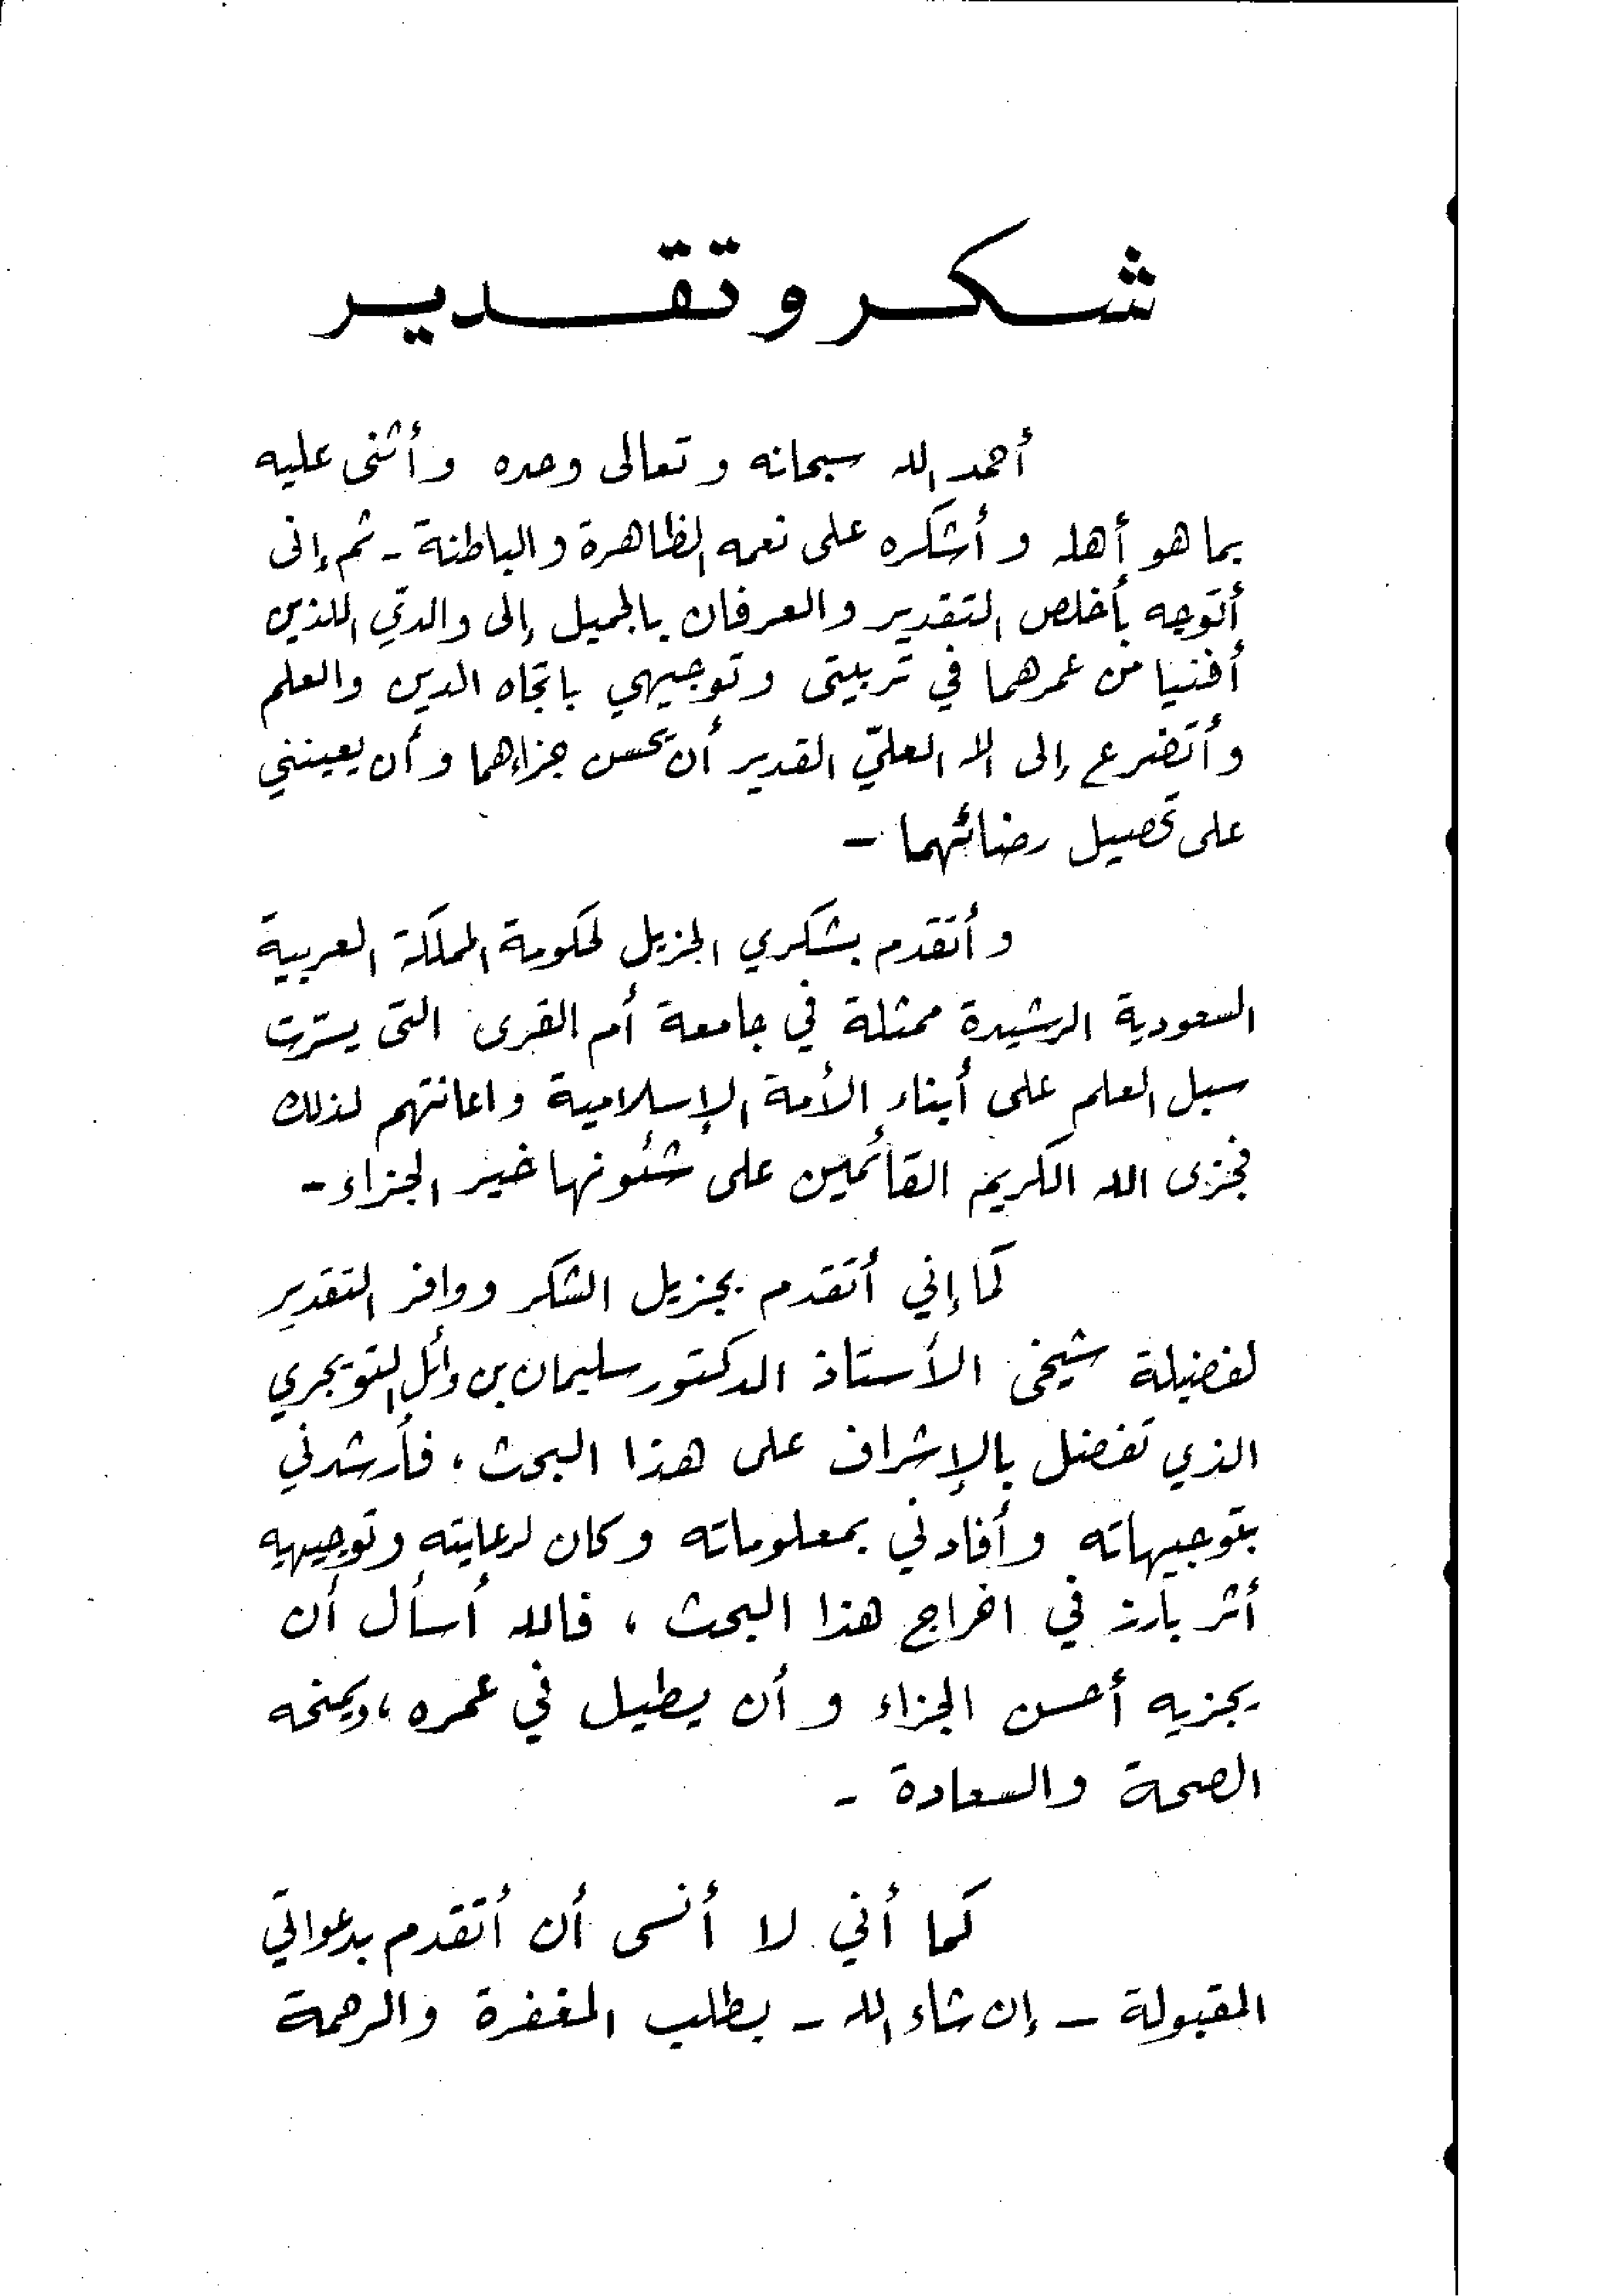 شكر وتقدير
أحمد الله سبحانه وتعالى وحده وأثنى عليه
بما هو أهله وأشكره على نعمه الظاهرة والباطنة - ثم إنى
أتوجه بأخلص التقدير والعرفان بالجميل إلى والديّ اللذين
أفنيا من عمرهما في تربيتى وتوجيهي باتجاه الدين والعلم
وأتضرع إلى الله العليّ القدير أن يحسن جزاءهما وأن يعينني
على تحصيل رضائهما -
وأتقدم بشكري الجزيل لحكومة المملكة العربية
السعودية الرشيدة ممثلة في جامعة أم القرى التى يسّرت
سبل العلم على أبناء الأمة الإسلامية واعانتهم لذلك
فجزى الله الكريم القائمين على شئونها خير الجزاء -
كما إني أتقدم بجزيل الشكر ووافر التقدير
لفضيلة شيخى الأستاذ الدكتور سليمان بن وائل التويجري
الذي تفضل بالإشراف على هذا البحث، فأرشدني
بتوجيهاته وأفادني بمعلوماته وكان لرعايته وتوجيهه
أثر بارز في اخراج هذا البحث، فالله أسأل أن
يجزيه أحسن الجزاء وأن يطيل في عمره، ويمنحه
الصحة والسعادة -
كما أني لا أنسى أن أتقدم بدعواتي
المقبولة - إن شاء الله - بطلب المغفرة والرحمة